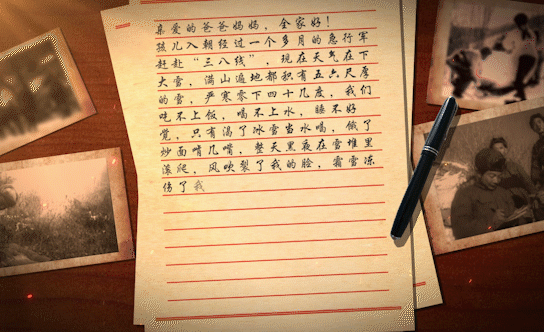 亲爱的爸爸妈妈，全家好！
孩儿入朝经过一个多月的急行军
赶赴“三八线”，现在天气在下
大雪，满山遍地都积有五六尺厚
的雪，严寒零下四十几度，我们
吃不上饭，喝不上水，睡不好
觉，只有渴了冰雪当水喝，饿了
炒面啃几嘴，整天黑夜在雪堆里
滚爬，风吹裂了我的脸，霜雪冻
伤了我